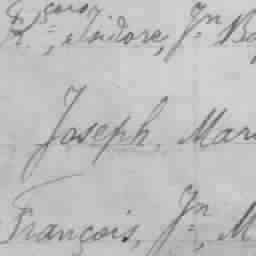 Isidore, Jn Ba
Joseph, Mar
François, Jn, M